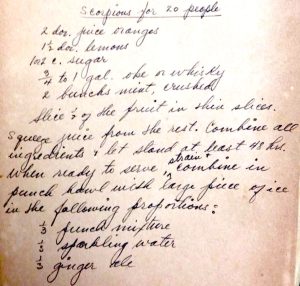 Scorpions for 20 people
2 doz. juice oranges
1½ doz. lemons
1 or 2 c. sugar
¾ to 1 gal. oke or whisky
2 bunchs mint, crushed
Slice ½ of the fruit in thin slices.
Squeeze juice from the rest. Combine all
ingredients & let stand at least 48 hrs.
When ready to serve, strain & combine in
punch bowl with large piece of ice
in the following proportions:
⅓ punch mixture
⅓ sparkling water
⅓ ginger ale